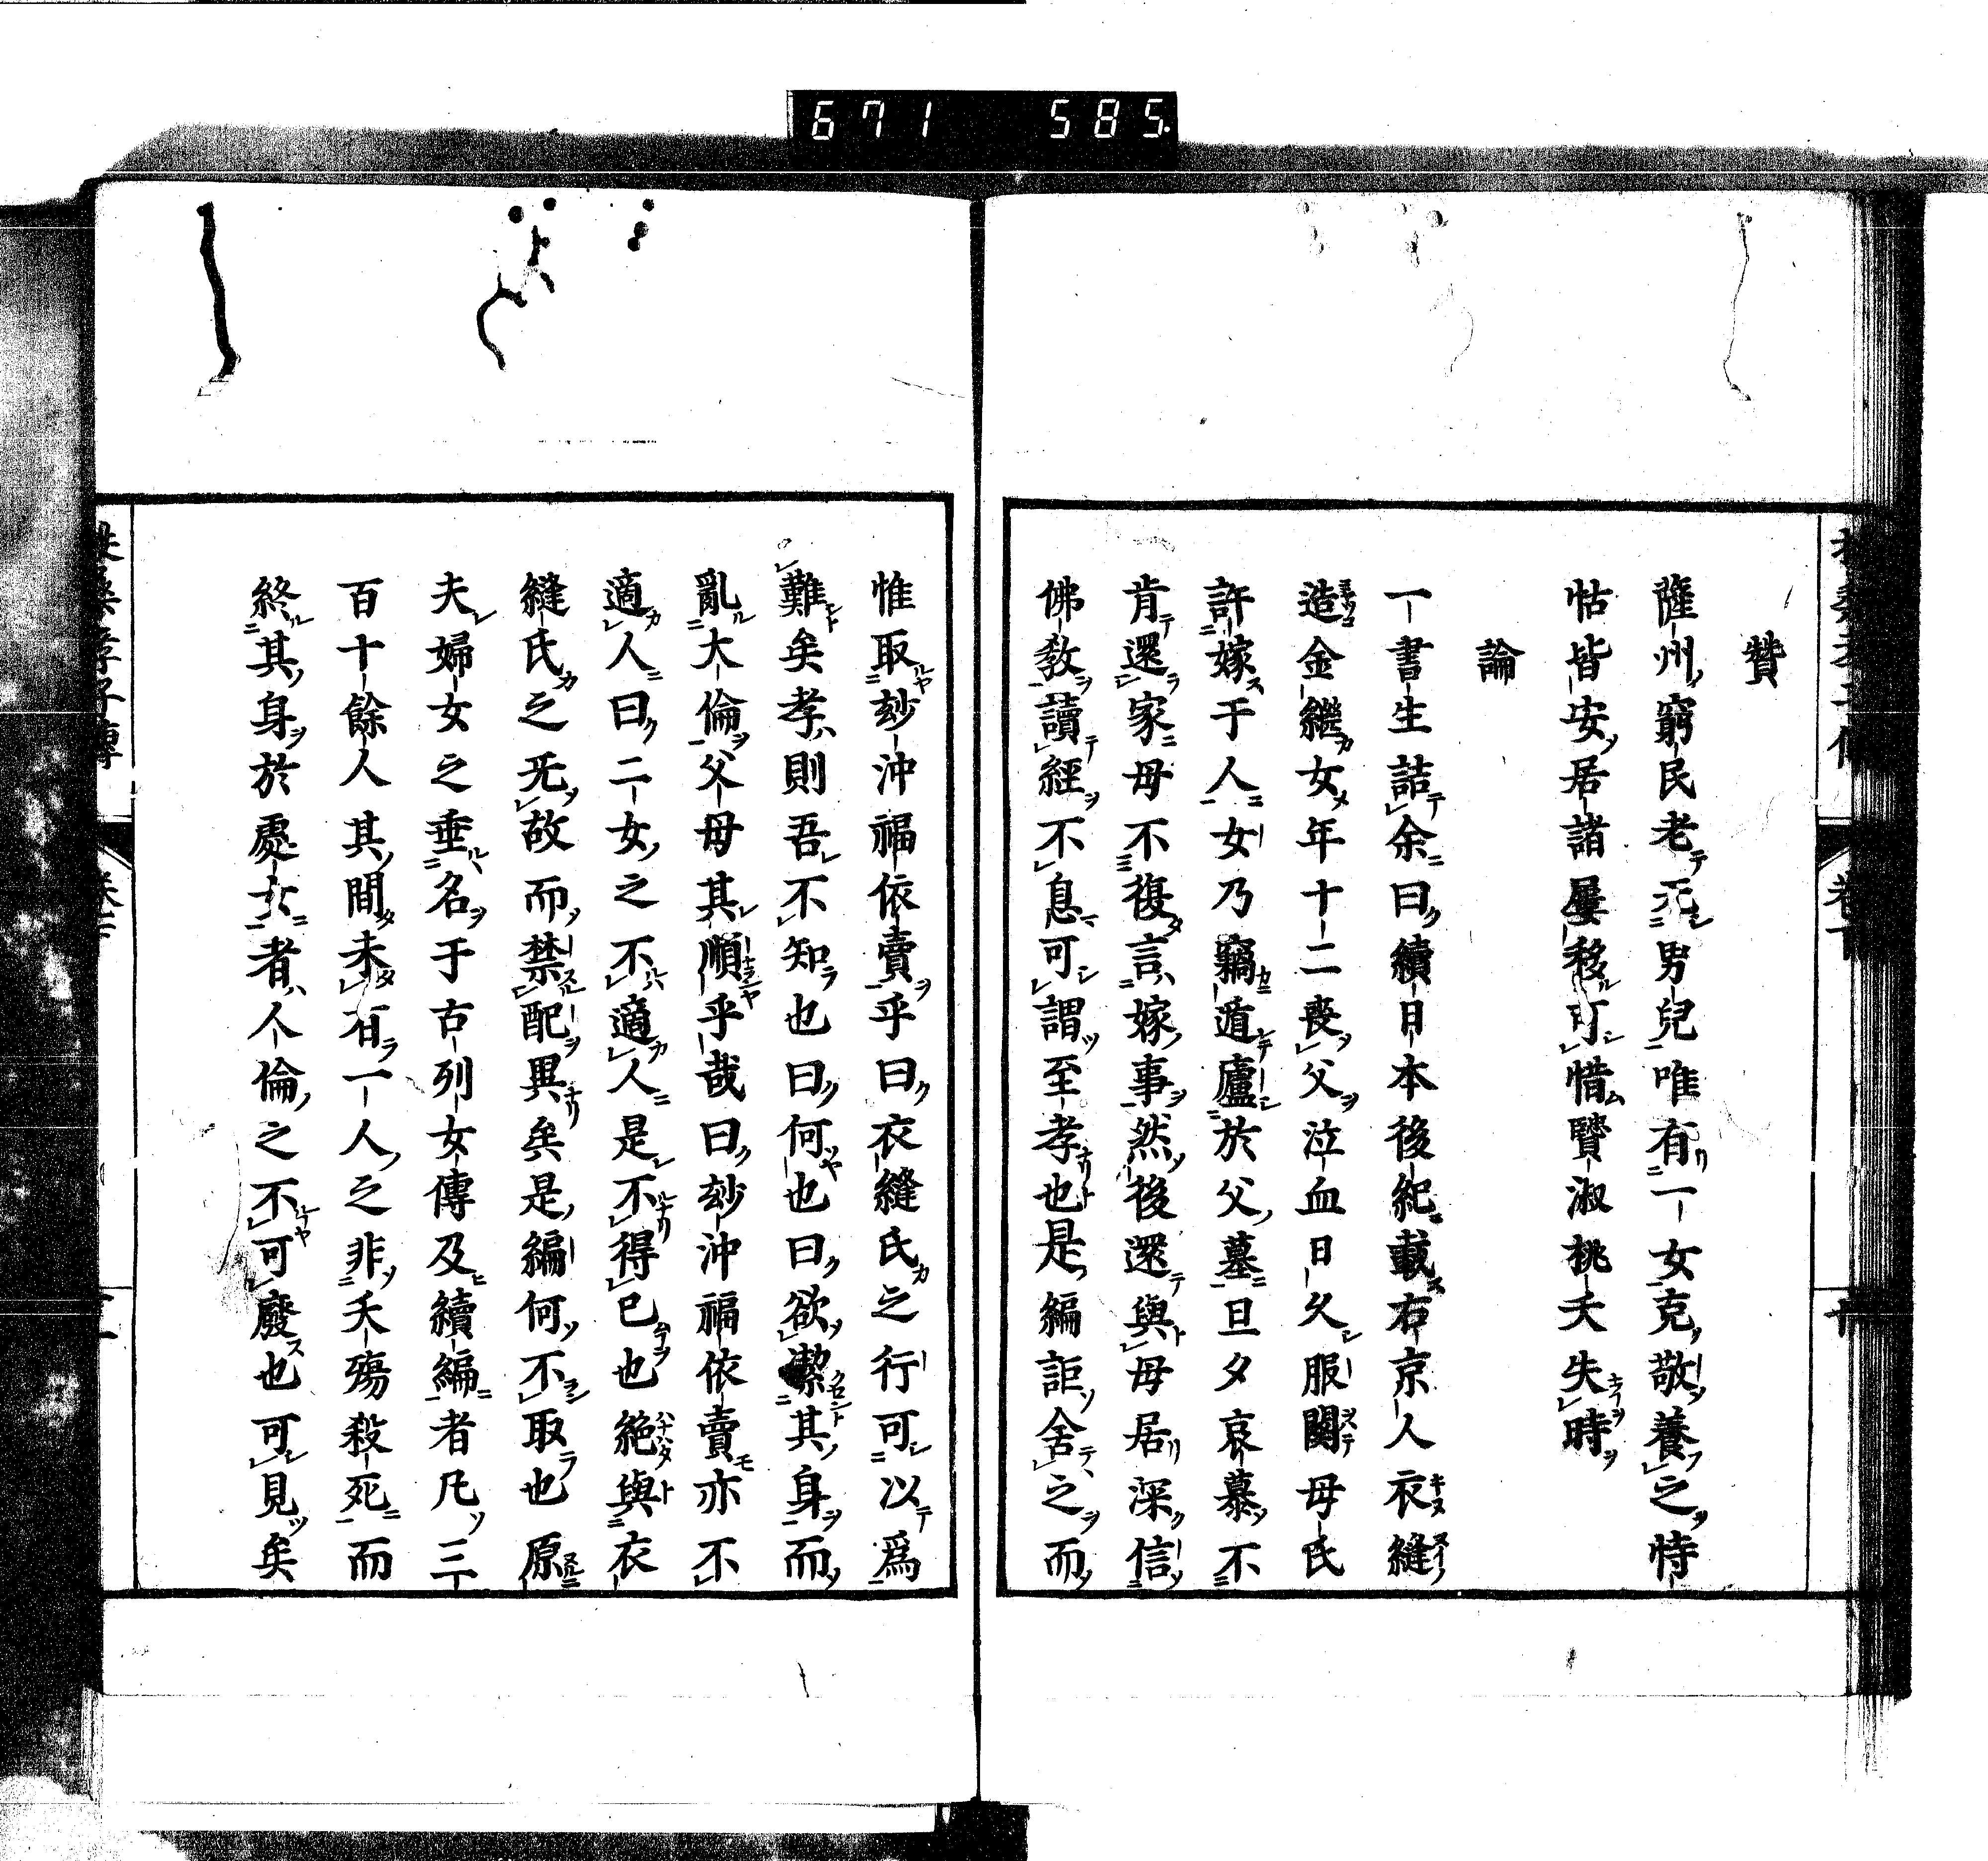 671 585
贊
薩州窮民老无男兒唯有一女克敬養之恃
怙皆安居諸屢移可惜賢淑桃夭失時
論
一書生詰余曰續日本後紀載右京人衣縫
造金繼女年十二喪父泣血日久服闋母氏
許嫁于人女乃竊遁廬於父墓旦夕哀慕不
肯還家母不復言嫁事然後還與母居深信
佛教讀經不息可謂至孝也是編詎舍之而
惟取玅沖福依賣乎曰衣縫氏之行可以爲
難矣孝則吾不知也曰何也曰欲潔其身而
亂大倫父母其順乎哉曰玅沖福依賣亦不
適人曰二女之不適人是不得已也絕與衣
縫氏之无故而禁配異矣是編何不取也原
夫婦女之垂名于古列女傳及續編者凡三
百十餘人其間未有一人之非夭殤殺死而
終其身於處女者人倫之不可廢也可見矣
孝子傳